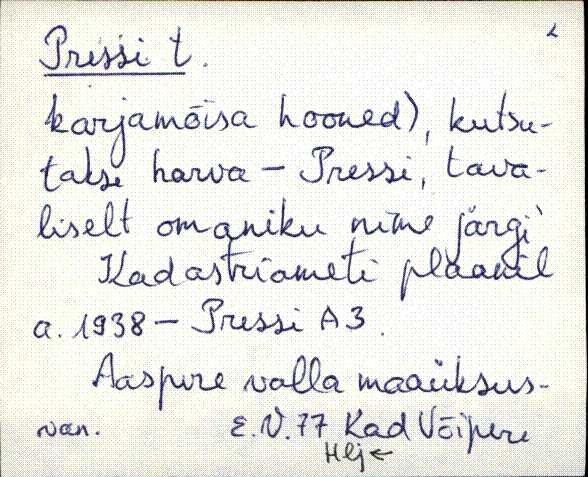 2
Pressi t.
karjamõisa hooned), kutsu-
takse harva – Pressi, tava-
liselt omaniku nime järgi
Kadastriameti plaanil
a. 1938 – Pressi A3.
Aaspere valla maaüksus-
van. E.V. 77 Kad Võipere
Hlj ←